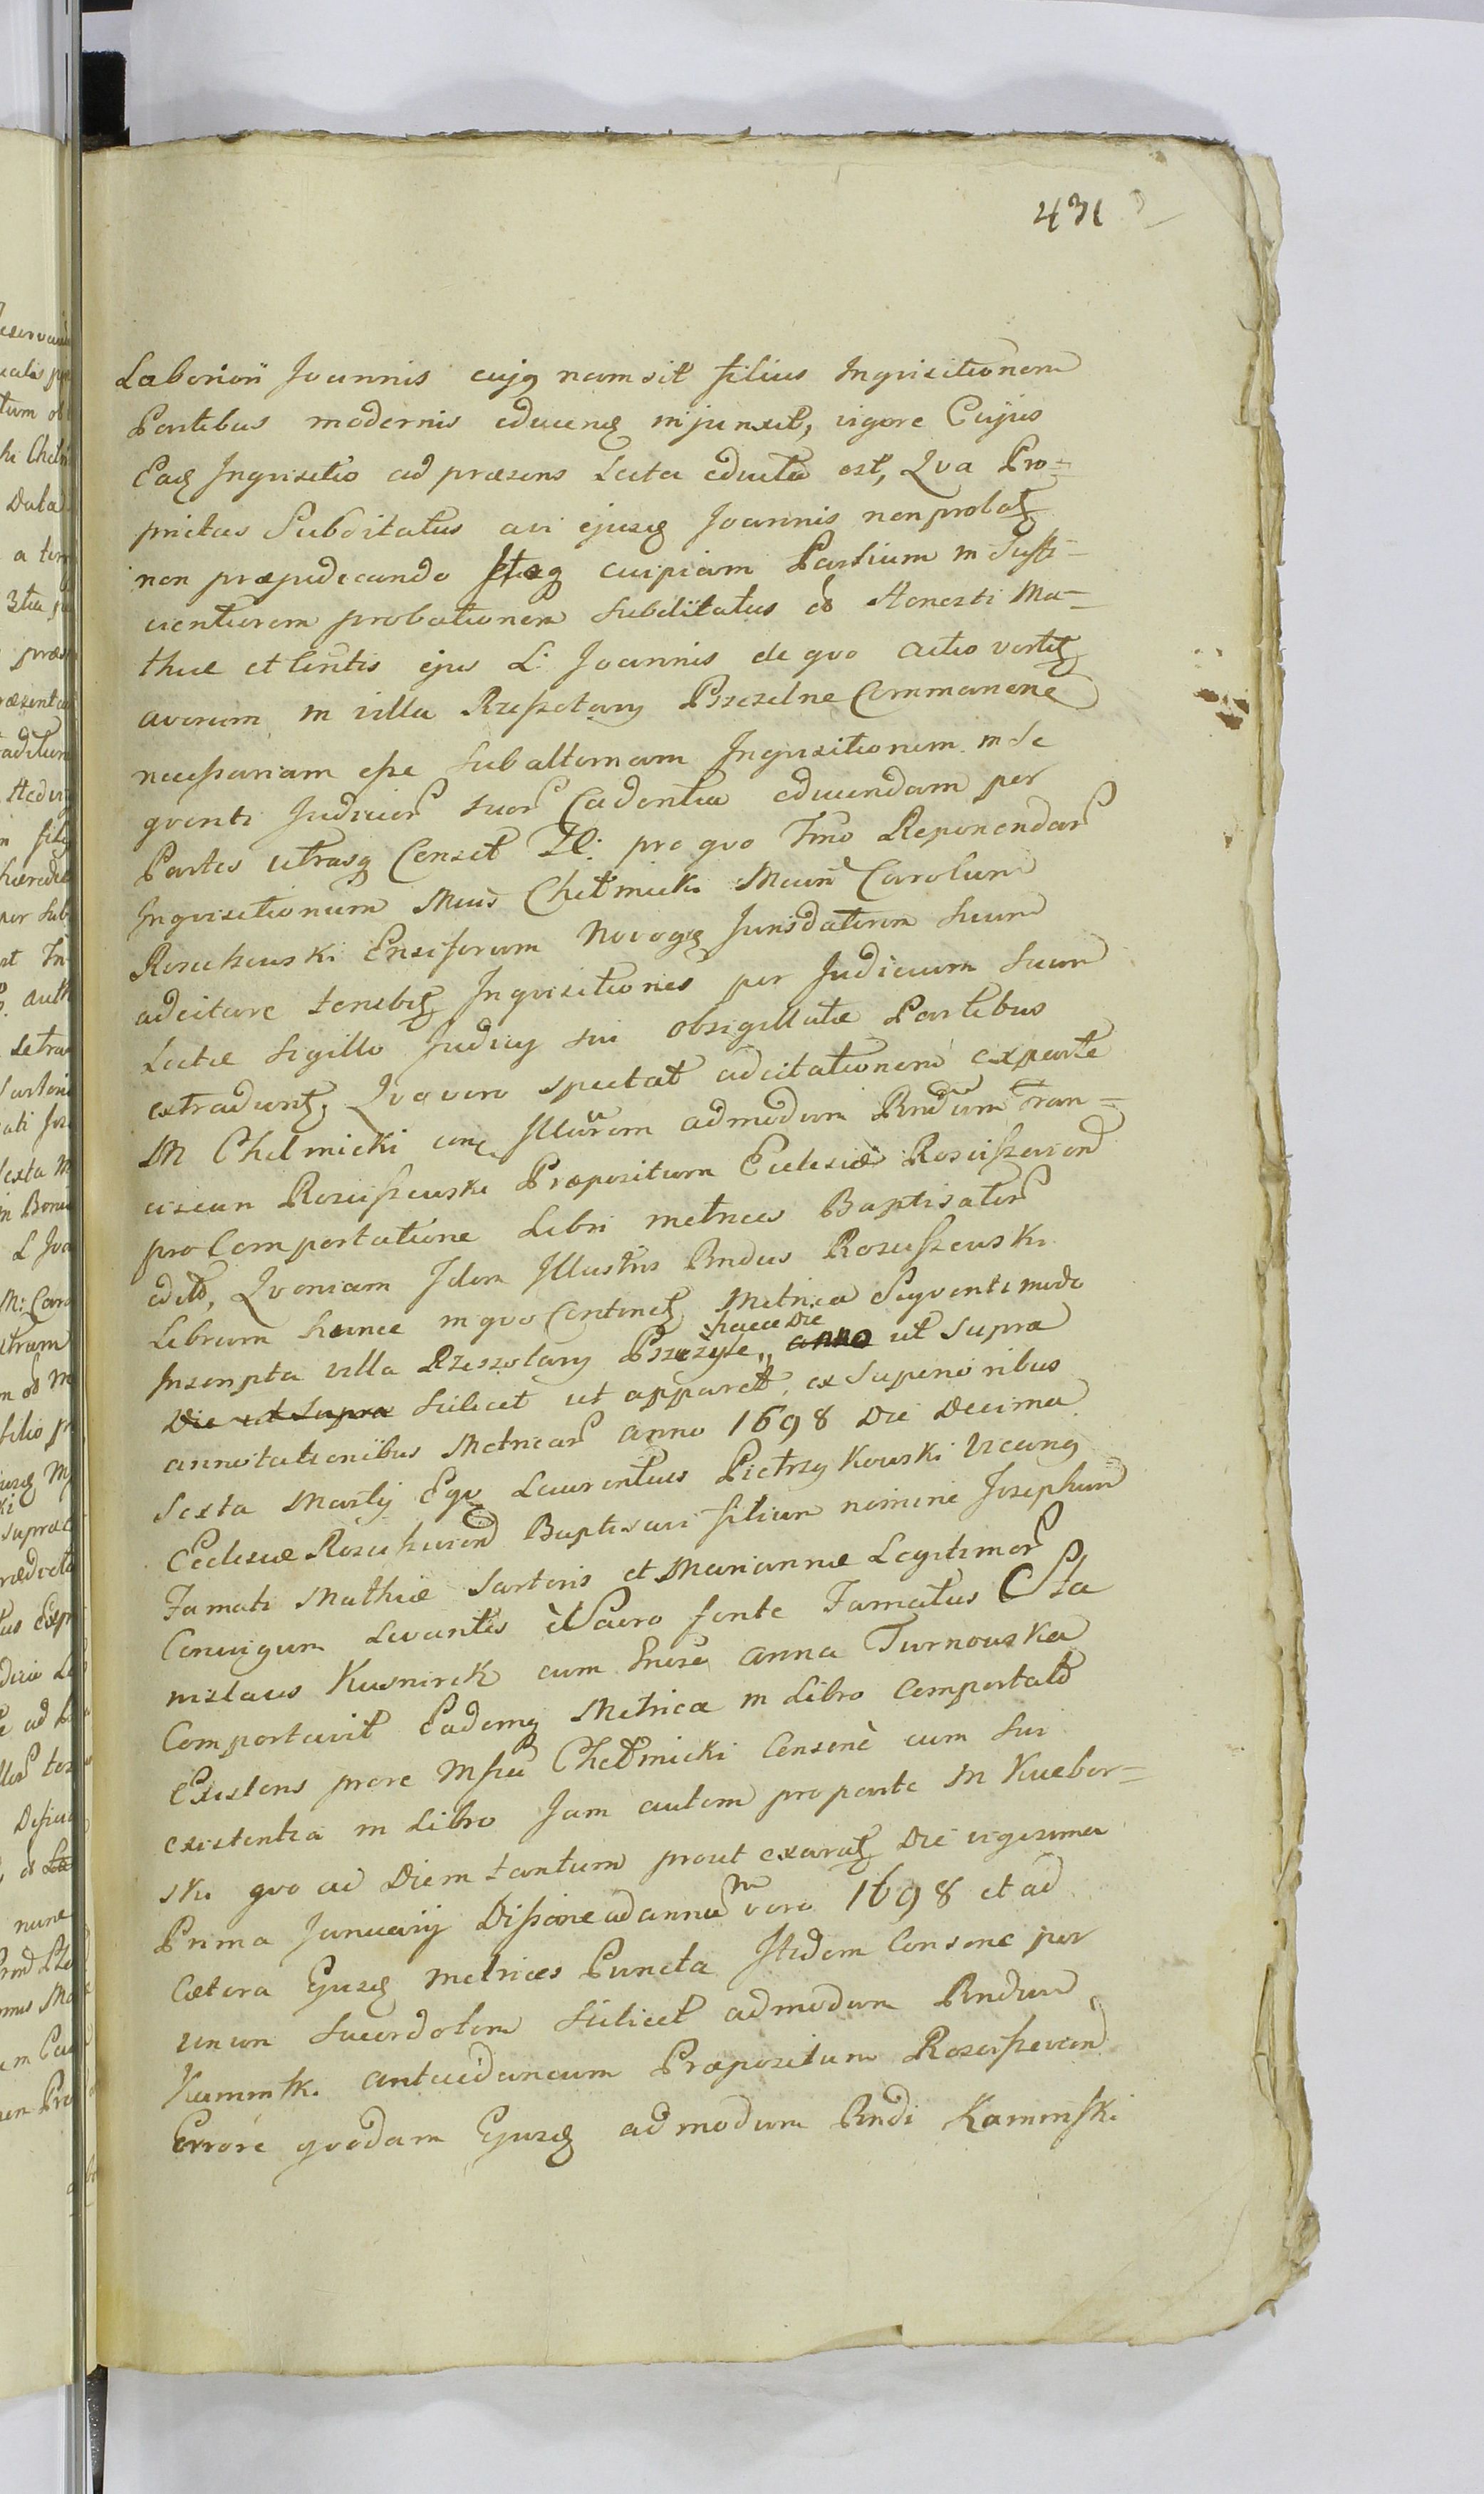 431
Laboriosi Joannis cujq namsit filius Inqvisitionem
Partibus modernis educenq injunxit, vigore Cujus
Eaq Inqvisitio ad præsens Lecta educta est, Qva Pro=
prietas Subditatus avi ejusq Joannis non probatq
non præjudicando Itaq cuipiam Partium in Suffi=
cientiorem probationem Subditatus ob Honesti Ma=
thiæ et lentis ejus L: Joannis de qvo actio vertitq
avorum in villa Rzeszotary Pszezelne Commanene
necessariam esse Subalternam Inqvisitionem in Se
qventi Judicior suor Cadentia educendam per
Partes utrasq Censet Id: pro qvo Tmo Reponendar
Inqvisitionum Mcus Chełmicki Mcum Carolum
Rosciszewski Ensiferum Novogq Jurisdatorem Suum
adcitare tenebitq Inqvisitiones per Judicium Suum
Lectæ Sigillo Judicij sui obsigillatæ Partibus
extradentq, Qvo vero spectat adcitationem exparte
M Chelmicki conc Illustrem admodum Rndum Fran=
ciscum Rosciszewski Præpositum Ecclesiæ Rosciszeviend
pro Comportatione Libri metrices Baptisator
edit, Qvoniam Idem Illustris Rndus Rosciszewski
Librum hunce in qvo Continetq Metrica Seqventi modo
Inscripta villa Rzeszotary Pszezyłe„ hacce Die anno ut Supra
Die ut Supra Scilicet ut apparet, ex Superioribus
annotationibus Metricar anno 1698 Die Decima
Sexta Martij Ego Laurentius Pietrzykowski Vicarig
Ecclesiæ Rosciszeviend Baptisavi filium nomine Josephum
Famati Mathiæ Sartoris et Mariannæ Legitimor
Conjugum Levantes è Sacro fonte Famatus Sta
nislaus Kusnirek cum Gnosa Anna Turnowska
Comportavit Eademq Metrica in Libro Comportato
Existens prore Mfici Chełmicki Consonè cum Sui
existentia in Libro Jam autem proparte M Kucbor=
ski qvo ad Diem tantum prout exaratq Die vigesima
Prima Januarij Dissone ad annum vero 1698 et ad
Cætera Ejusq metrices Puncta Itidem Consone per
unum Sacerdotem Scilicet admodum Rndum
Kaminski antecidaneum Præpositum Rosciszeviend
Errore qvodam Ejusq admodum Rndi Kaminski